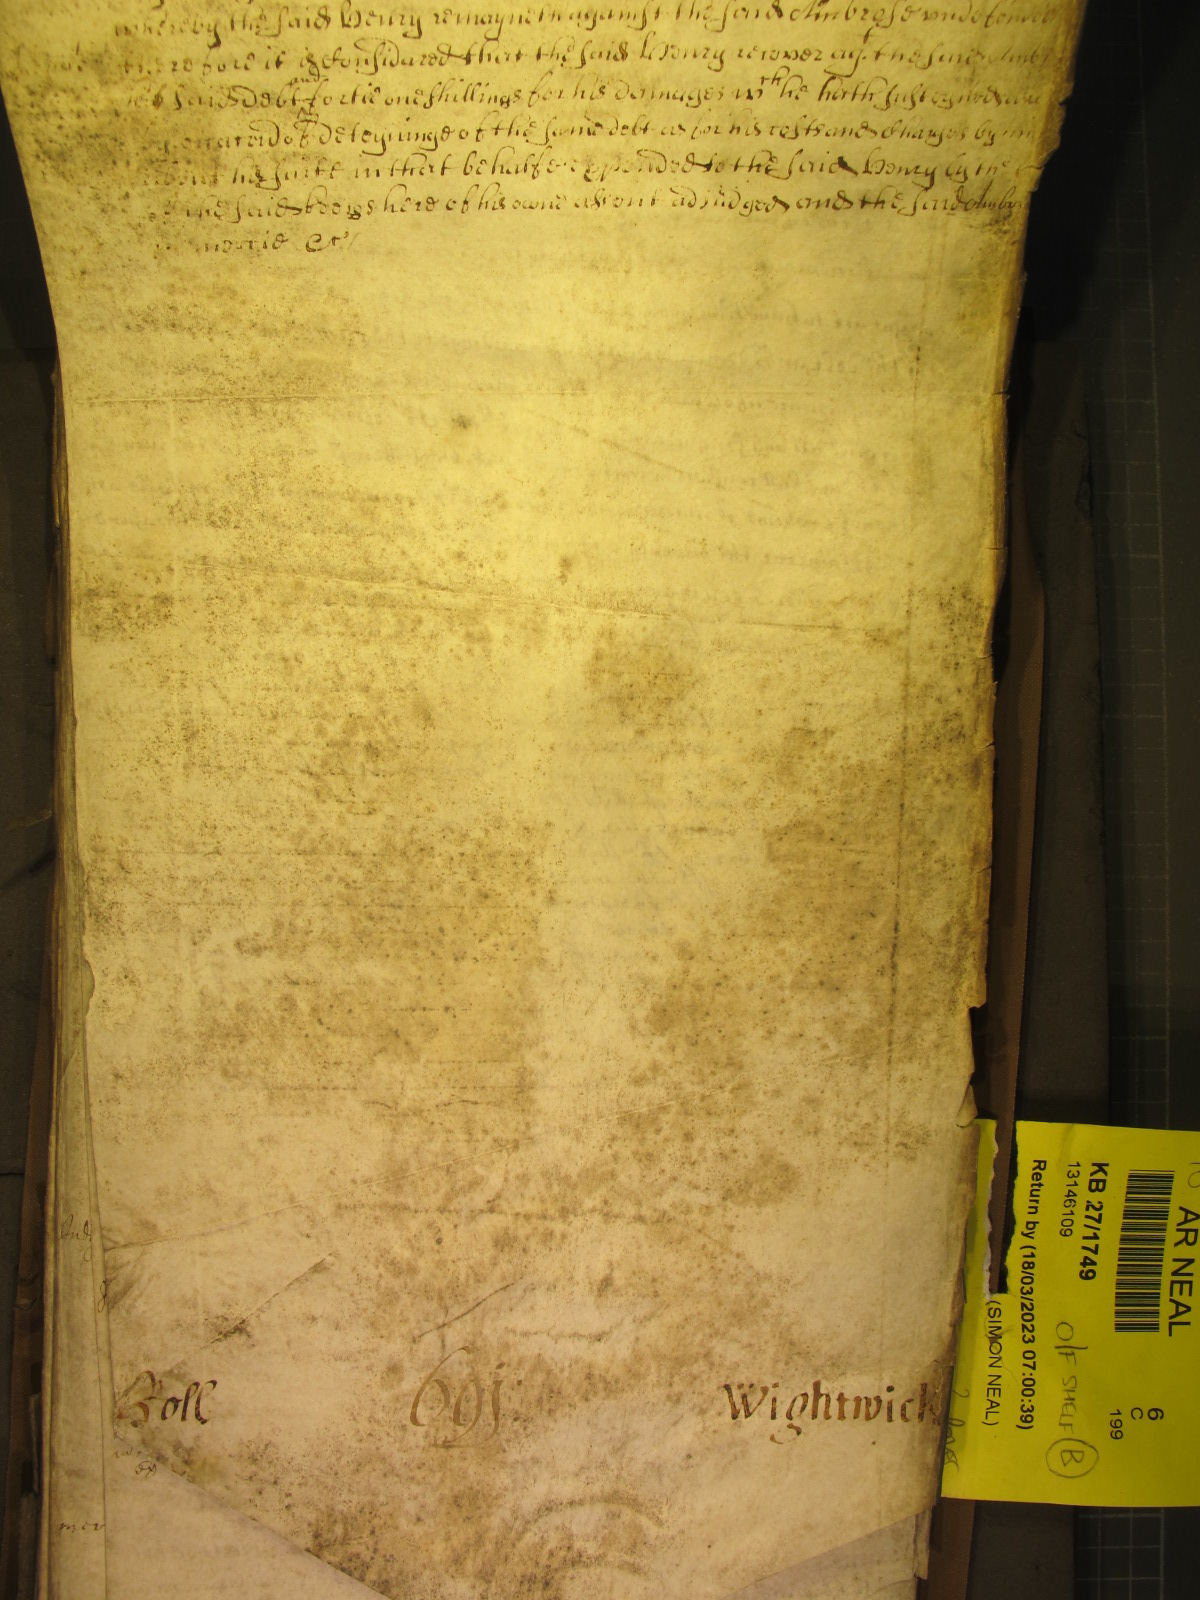 whereby the said Henry remayneth against the said Ambrose undefended
therefore it is considered that the said Henry recover agt. the said Ambr
his said debt and fortie one shillings for his damages wch he hath susteyned
of deteyninge of the same debt as for his costs and charges by him
about his suite in that behalfe expended to the said Henry by the
the said keeps here of his owne assent adjudged and the said Ambr
in mercie &c
Roll 691 Wightwick
Judg
mcv
AR NEAL
KB 27/1749
13146109
Return by (18/03/2023 07:00:39)
(SIMON NEAL)
O/F SHELF (B)
6
C
199